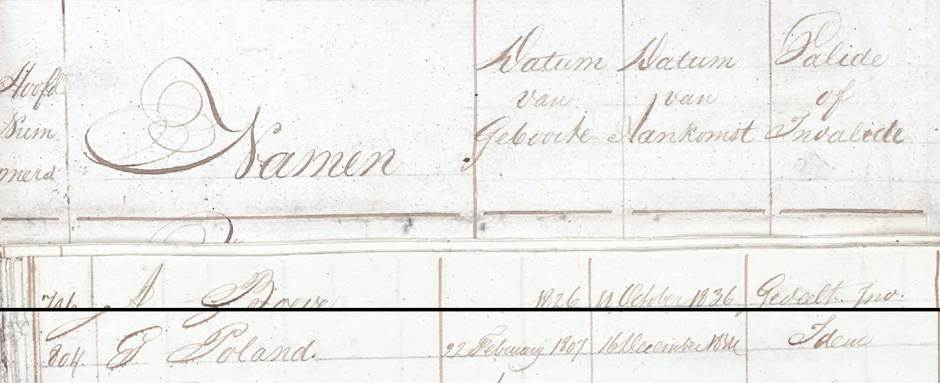 Hoofd
Num
merd
Namen
Datum
van
Geboorte
Datum
van
Aankomst
Valide
of
Invalide
706 J Boeve 1826 11 October 1836 Gedeelt. Inv.
804 G Poland. 22 February 1807 16 December Idem